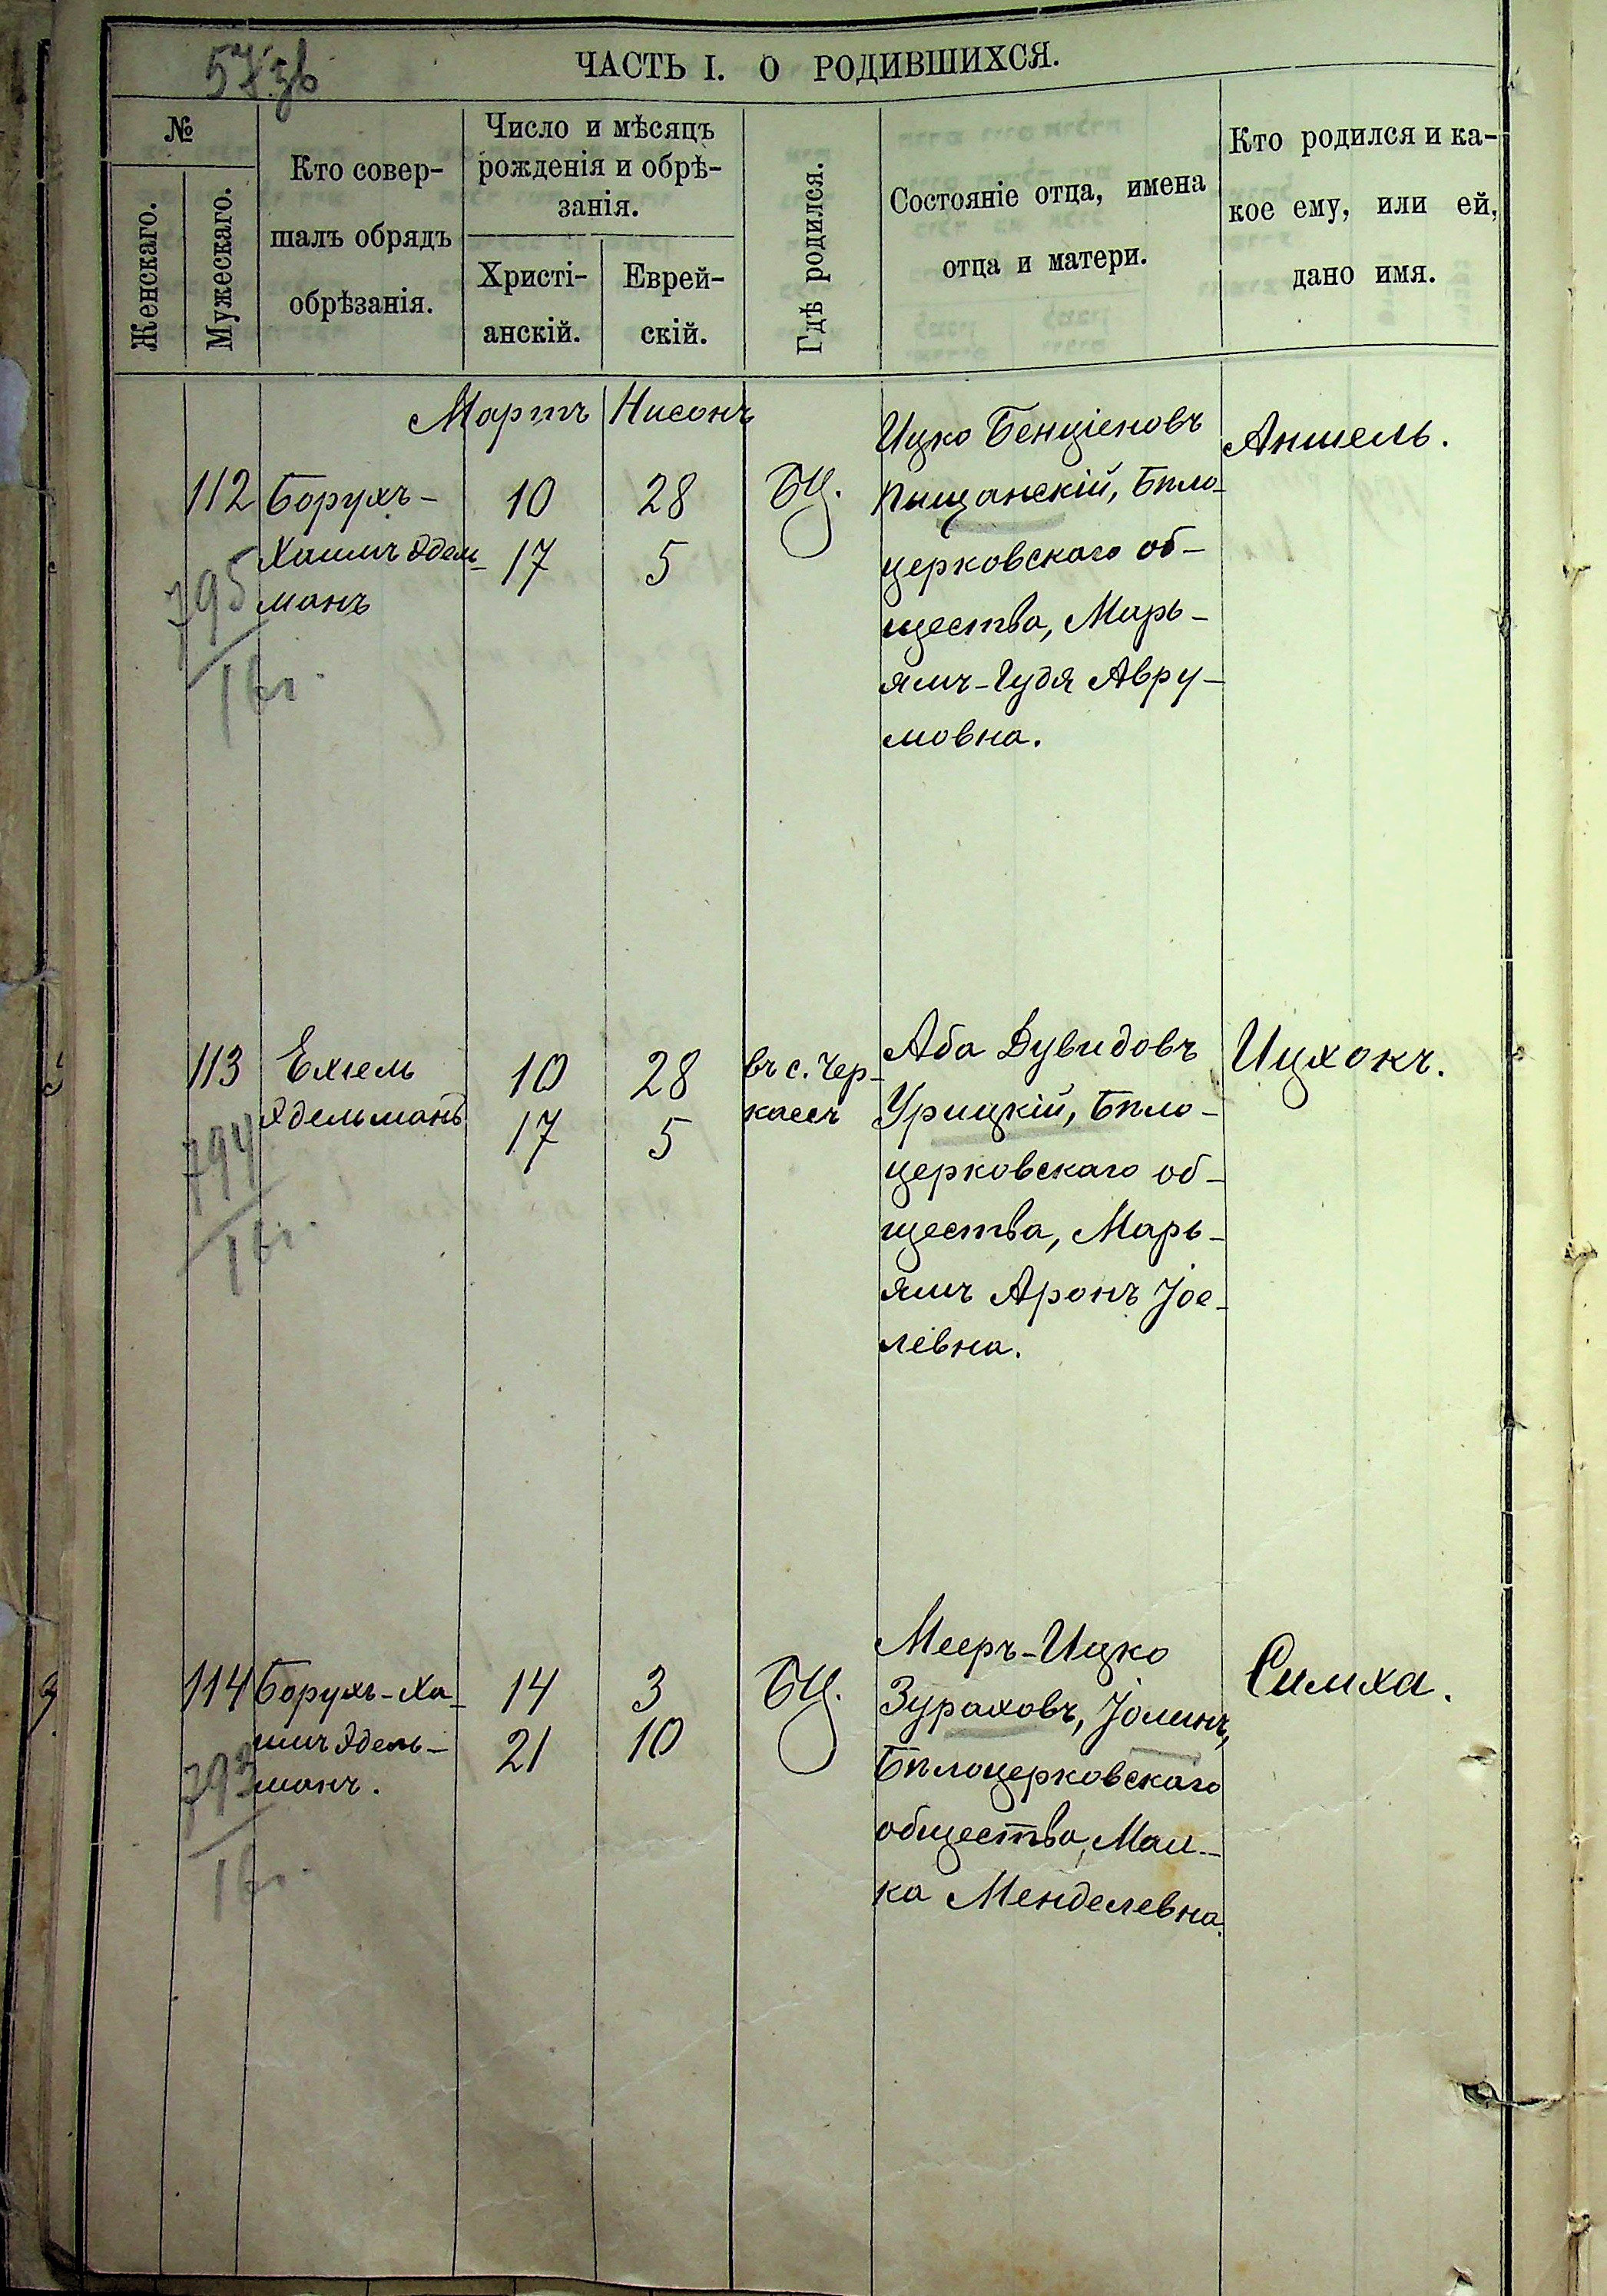 ЧАСТЬ I. О РОДИВШИХСЯ.
№
Женскаго.
Мужескаго.
Кто совер-
шалъ обрядъ
обрѣзанія.
Число и мѣсяцъ
рожденія и обрѣ-
занія.
Христі-
анскій.
Еврей-
скій.
Гдѣ родился.
Состояніе отца, имена
отца и матери.
Кто родился и ка-
кое ему, или ей,
дано имя.
Мартъ
Нисонъ
112
795
16г.
Борухъ-
Хаимъ Эдель-
манъ
10
17
28
5
БЦ.
Ицко Бенціоновъ
Пищанскій, Бѣло-
церковскаго об-
щества, Марь-
ямъ-Гудя Авру-
мовна.
Аншель.
113
794
16г.
Ехіель
Эдельманъ
10
17
28
5
въ с. Чер-
касъ
Аба Дувидовъ
Урицкій, Бѣло-
церковскаго об-
щества, Марь-
ямъ Аронъ Іое-
левна.
Ицхокъ.
114
793
16г.
Борухъ-Ха-
имъ Эдель-
манъ.
14
21
3
10
БЦ.
Мееръ-Ицко
Зураховъ, Іолинъ,
Бѣлоцерковскаго
общества, Мал-
ка Менделевна.
Симха.